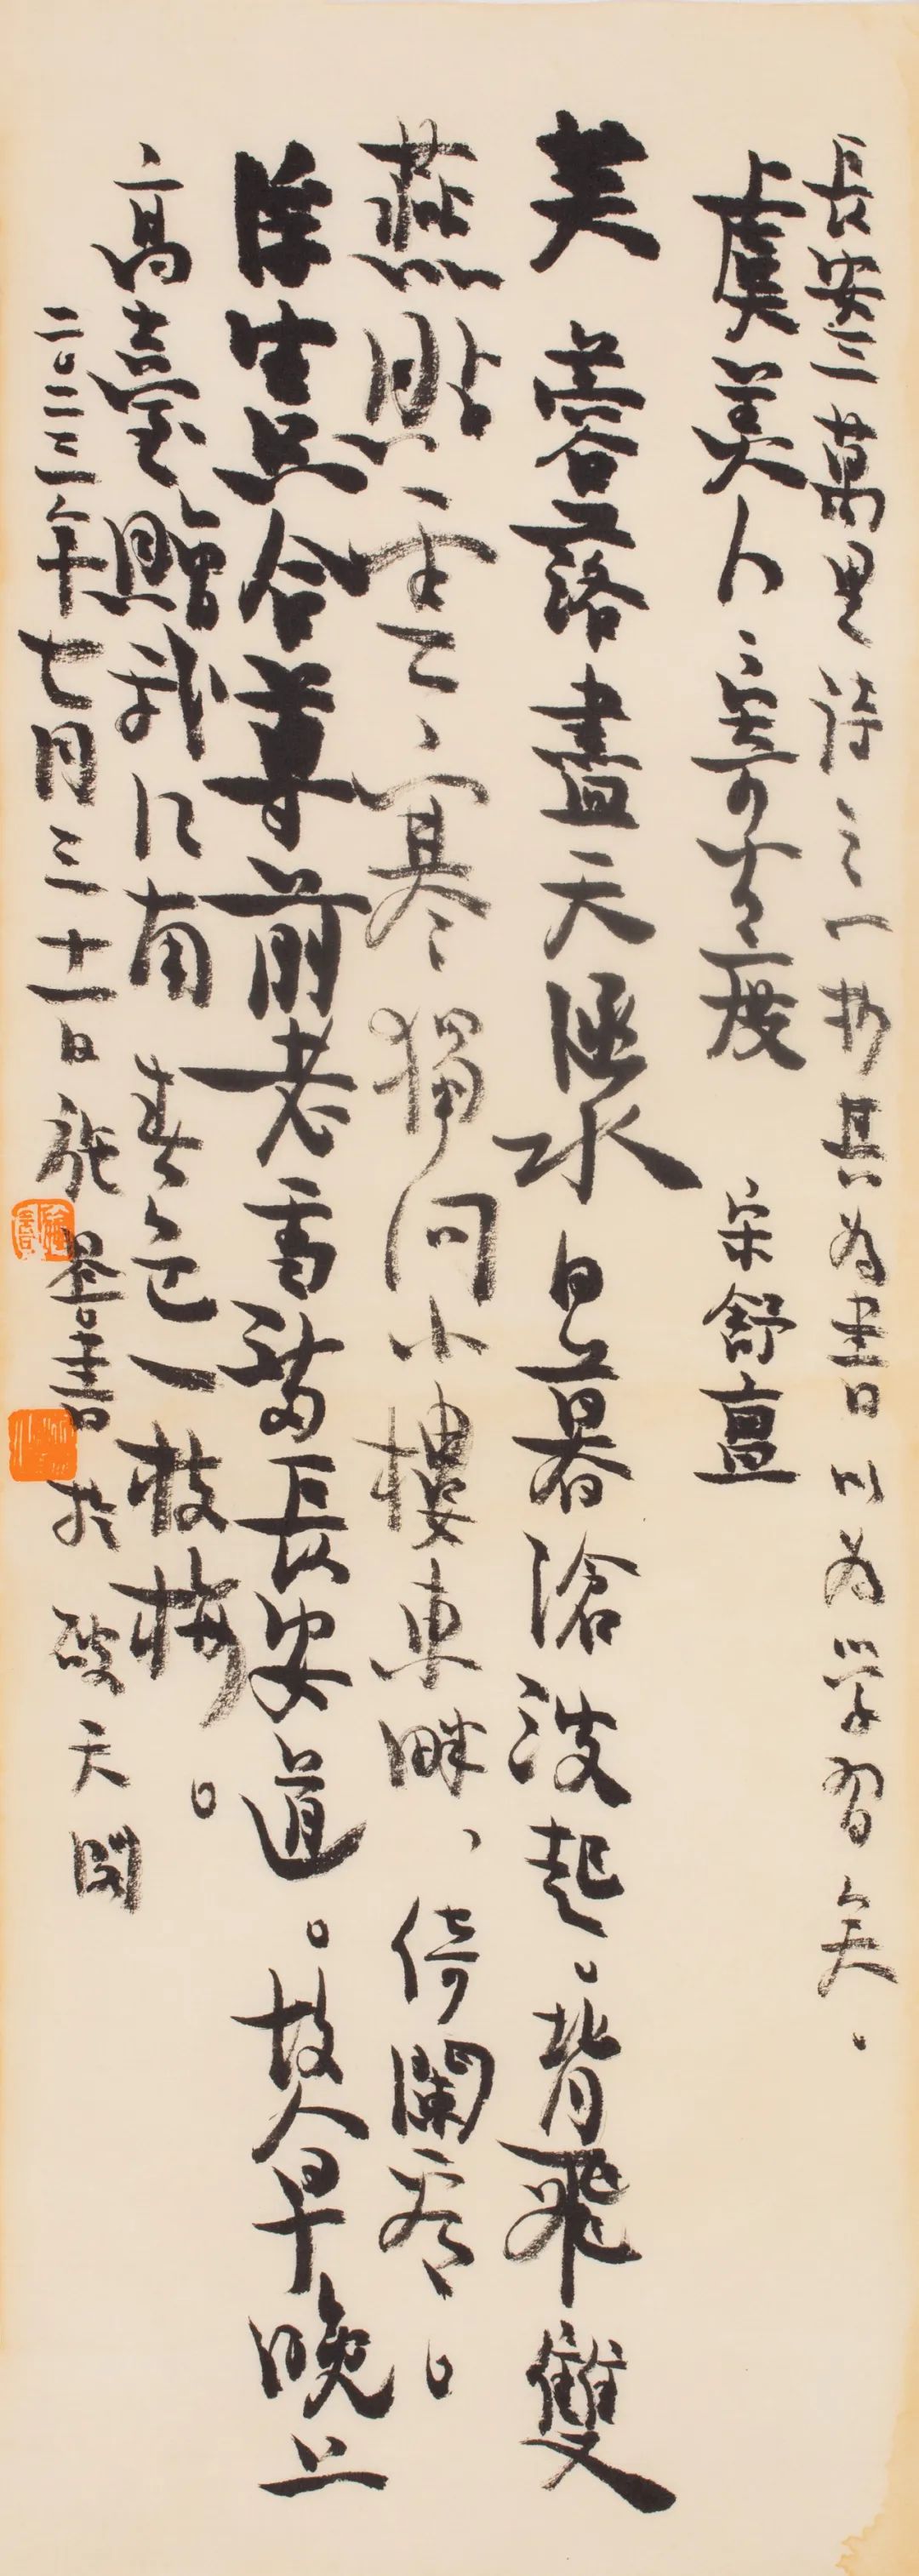 長安三萬里詩之一抄其為書日以為学習矣。
虞美人、寄公度 宋舒亶
芙蓉落盡天涵水日暮滄波起、背飛雙
燕貼雲寒獨向小樓東畔、倚闌看。
浮生只合尊前老雪滿長安道。故人早晚上
高臺贈我江南春色一枝梅。
二〇二三年七月三十一日施墨書於破天